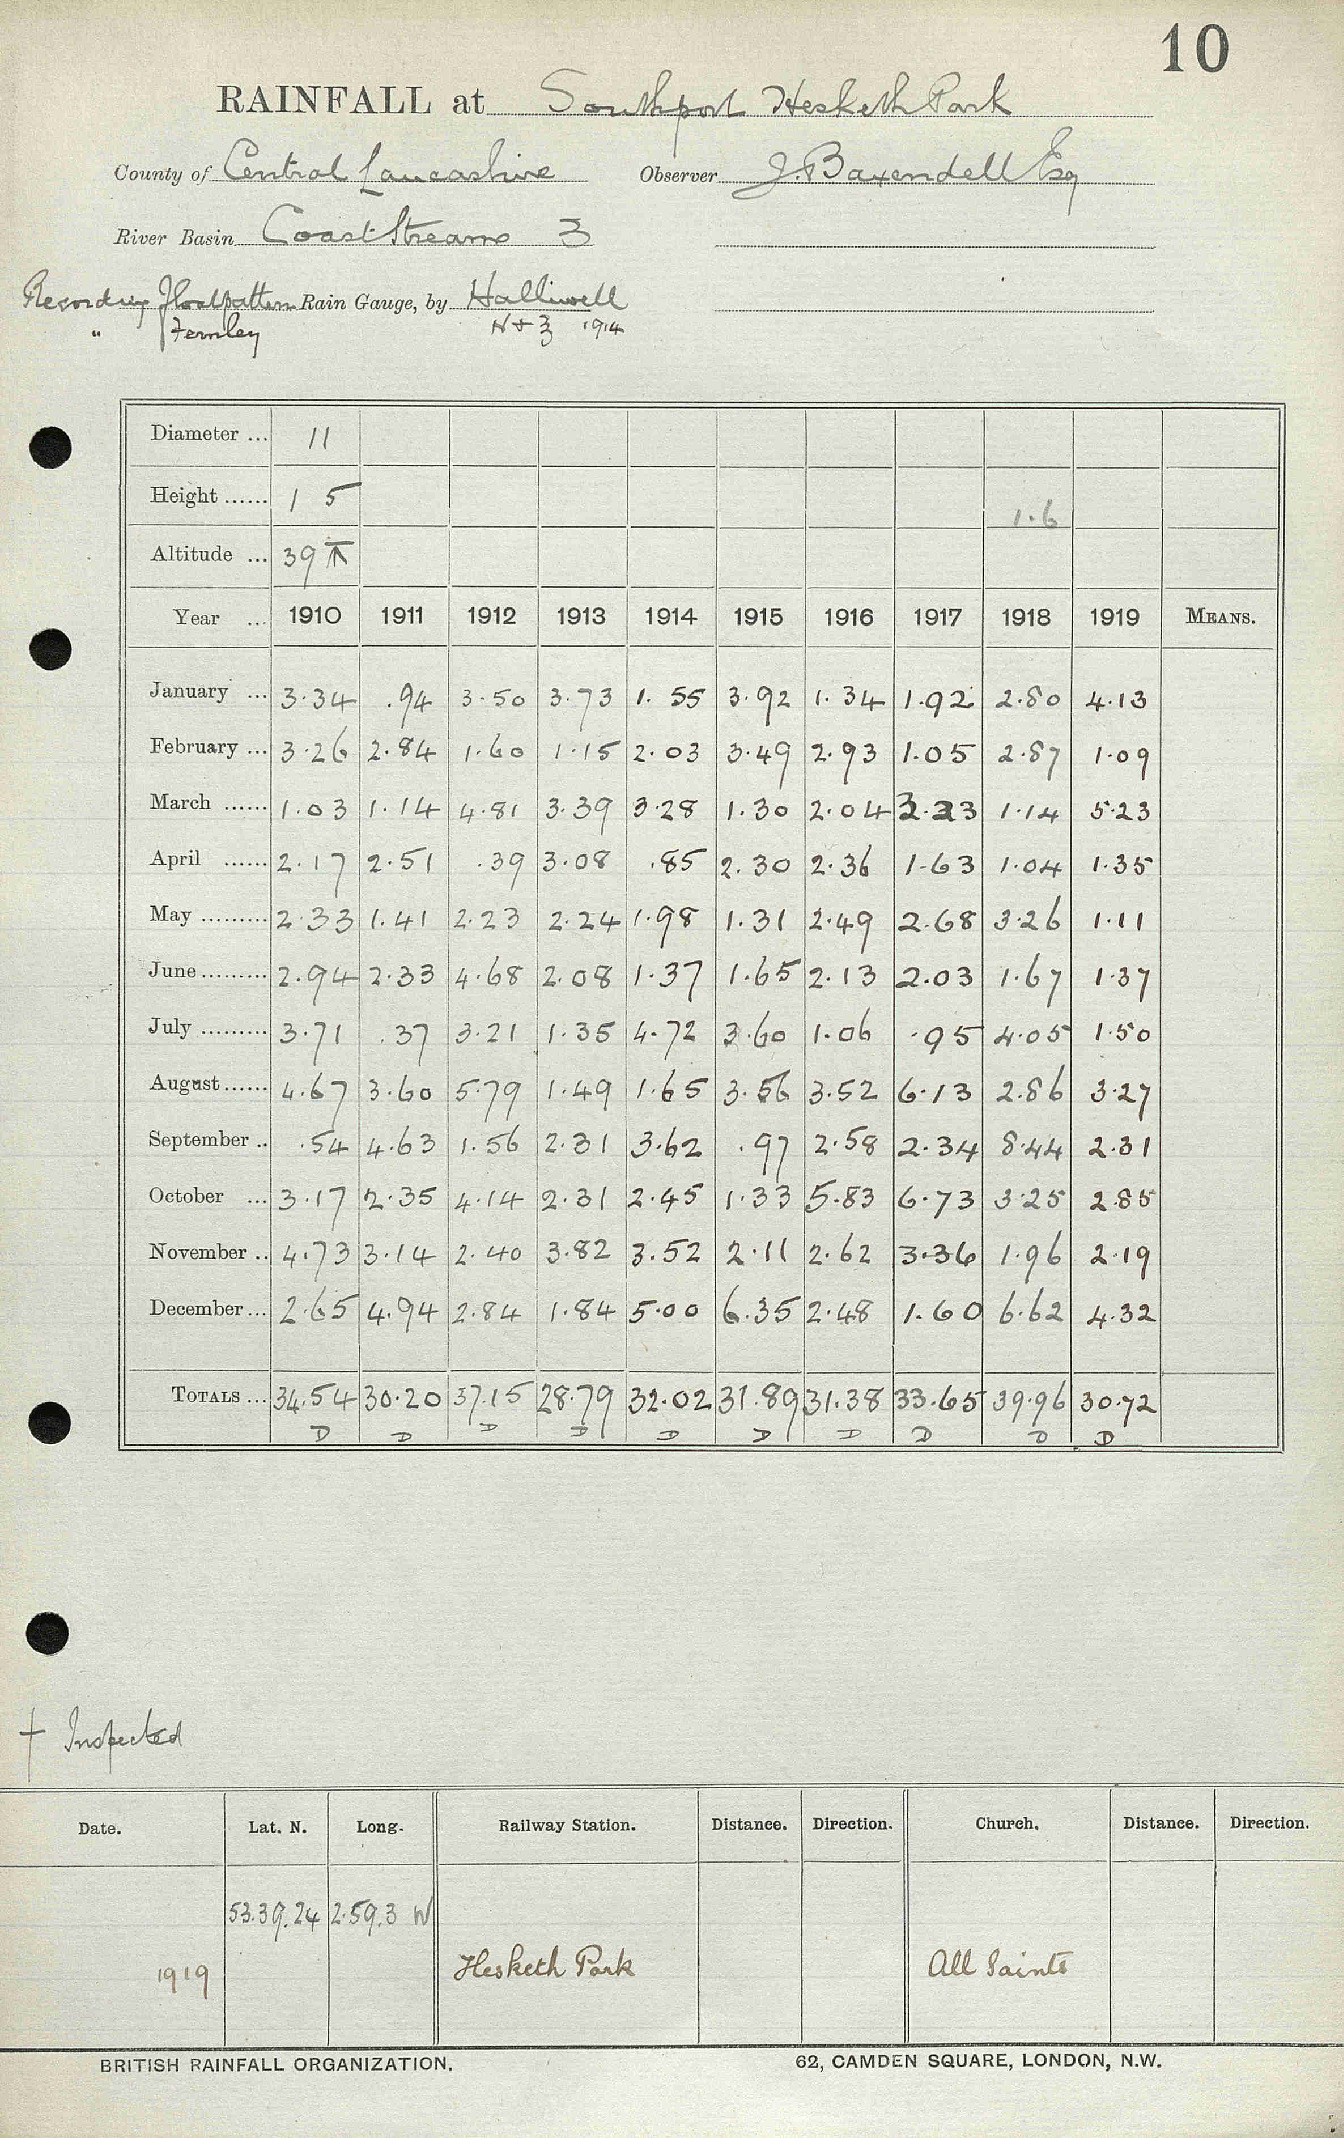 10
RAINFALL at Southport Hesketh Park
County of Central Lancashire Observer J. Baxendell Esq
River Basin Coast Streams 3
Recording Float pattern Rain Gauge, by Halliwell
" Fernley N + Z 1914
Diameter ... 11
Height ...... 1 5 1.6
Altitude ... 39
Year ... 1910 1911 1912 1913 1914 1915 1916 1917 1918 1919 MEANS.
January ... 3.34 .94 3.50 3.73 1.55 3.92 1.34 1.92 2.80 4.13
February ... 3.26 2.84 1.60 1.15 2.03 3.49 2.93 1.05 2.87 1.09
March ...... 1.03 1.14 4.81 3.39 3.28 1.30 2.04 3.23 1.14 5.23
April ...... 2.17 2.51 .39 3.08 .85 2.30 2.36 1.63 1.04 1.35
May ......... 2.33 1.41 2.23 2.24 1.98 1.31 2.49 2.68 3.26 1.11
June ......... 2.94 2.33 4.68 2.08 1.37 1.65 2.13 2.03 1.67 1.37
July ......... 3.71 .37 3.21 1.35 4.72 3.60 1.06 .95 4.05 1.50
August ...... 4.67 3.60 5.79 1.49 1.65 3.56 3.52 6.13 2.86 3.27
September .. .54 4.63 1.56 2.31 3.62 .97 2.58 2.34 8.44 2.31
October ... 3.17 2.35 4.14 2.31 2.45 1.33 5.83 6.73 3.25 2.85
November .. 4.73 3.14 2.40 3.82 3.52 2.11 2.62 3.36 1.96 2.19
December ... 2.65 4.94 2.84 1.84 5.00 6.35 2.48 1.60 6.62 4.32
TOTALS ... 34.54 30.20 37.15 28.79 32.02 31.89 31.38 33.65 39.96 30.72
D D D D D D D D D D
† Inspected
Date. Lat. N. Long. Railway Station. Distance. Direction. Church. Distance. Direction.
53.39.24 2.59.3 W
1919 Hesketh Park All Saints
BRITISH RAINFALL ORGANIZATION. 62, CAMDEN SQUARE, LONDON, N.W.